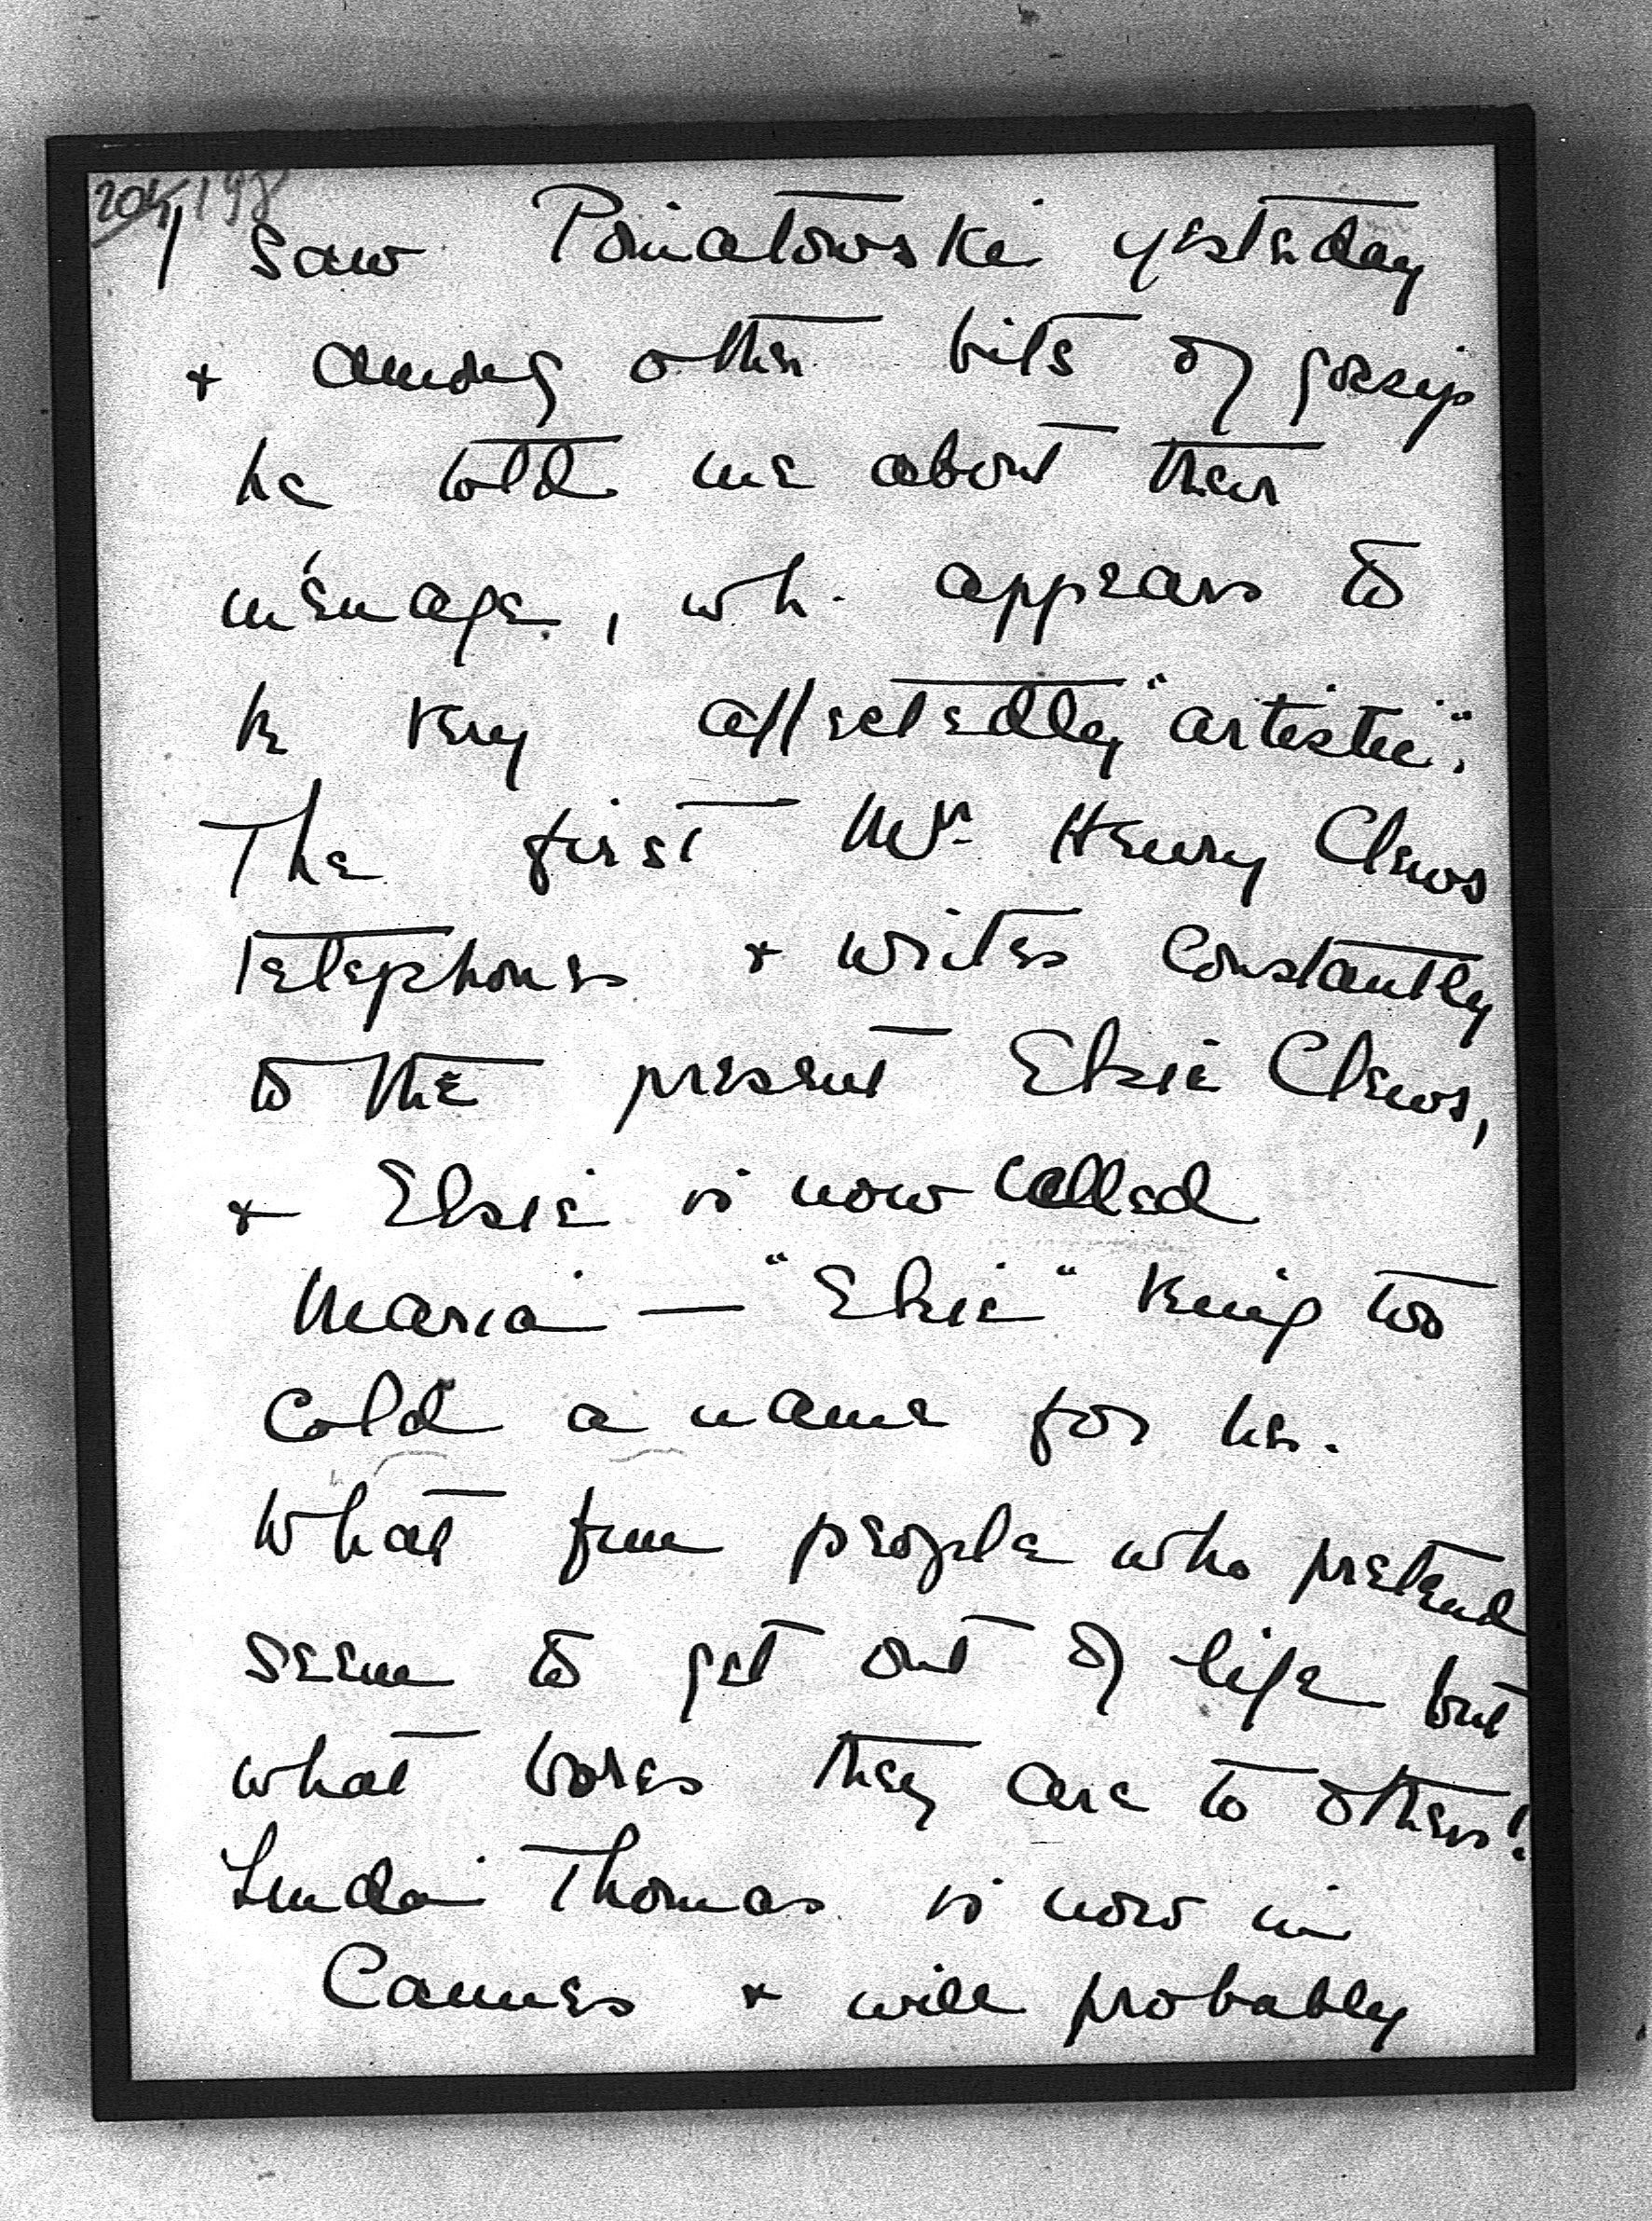 204 198
I saw Poniatowski yesterday
+ among other bits of gossip
he told me about their
ménage, wh. appears to
be very affectedly "artistic".
The first Mrs Henry Clews
telephones + writes constantly
to the present Elsie Clews,
+ Elsie is now called
Maria — "Elsie" being too
cold a name for her.
What fun people who pretend
seem to get out of life but
what bores they are to others!
Linda Thomas is now in
Cannes + will probably